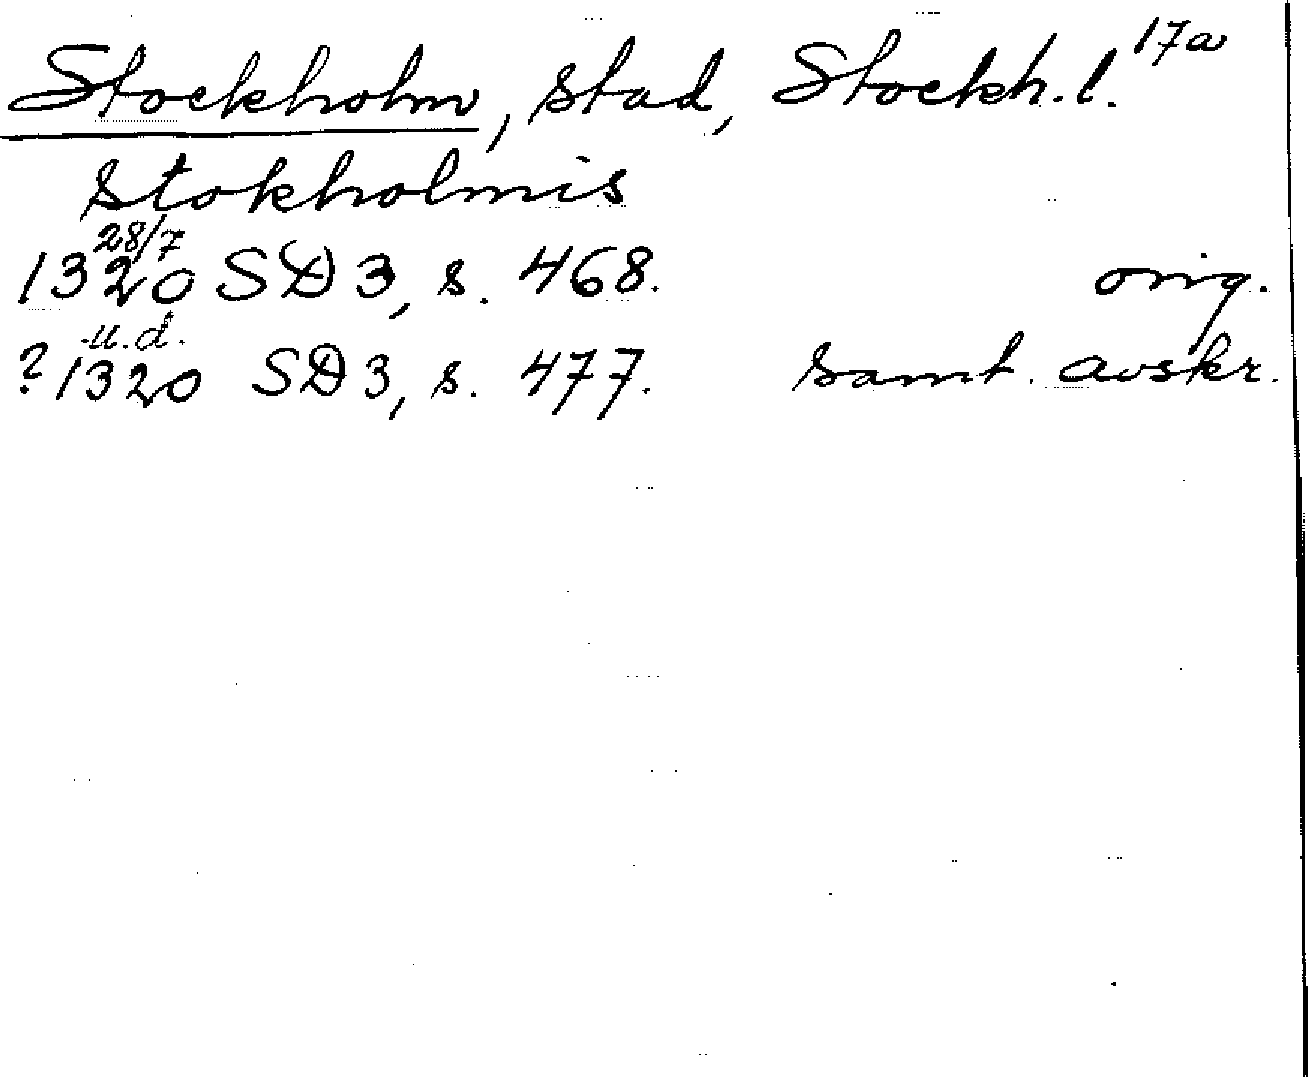 Stockholm, stad, Stockh. l. 17a
Stokholmis
28/7
1320 SD 3, s. 468. orig.
u.d.
? 1320 SD 3, s. 477. samt. avskr.